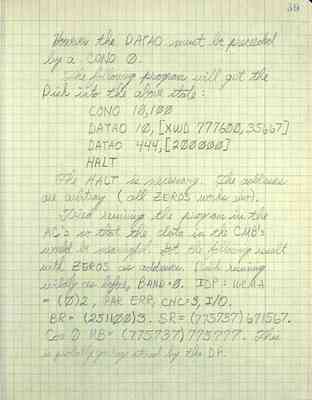 59
However the DATAO must be preceeded
by a CONO 0.
The following program will get the
Disk into the above state:
CONO 10,100
DATAO 10, [XWD 777600,35667]
DATAO 444,[200000]
HALT
The HALT is necessary. The addresses
are arbitrary (all ZEROS works too).
Tried running the program in the
AC's so that the data in the CMB's
would be meaningful. Got the following result
with ZEROS as addresses. Disk running
wildly as before, BAND=0. IOP: WCMA
= (0)2, PAR ERR, CHC=3, I/O,
BR = (251100)3. SR= (773737)671567.
MB= (775737)775777. This
is probably going stored by the DP.